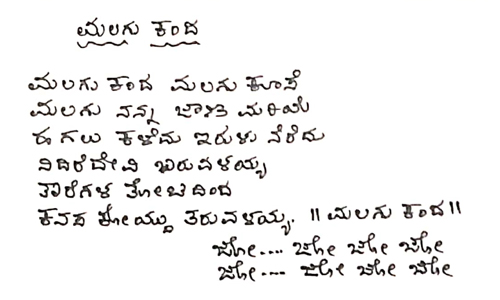 ಮಲಗು ಕಂದ
ಮಲಗು ಕಂದ ಮಲಗು ಕೂಸೆ
ಮಲಗು ನನ್ನ ಜಾಣ ಮರಿಯೆ
ಈ ಗಲು ಕಳೆದು ಇರುಳು ನೆರೆದು
ನಿದಿರೆದೇವಿ ಬರುವಳಯ್ಯ
ತಾರೆಗಳ ತೋಟದಿಂದ
ಕನಸ ಕೊಯ್ದು ತರುವಳಯ್ಯ. || ಮಲಗು ಕಂದ ||
ಜೋ.... ಜೋ ಜೋ ಜೋ
ಜೋ.... ಜೋ ಜೋ ಜೋ